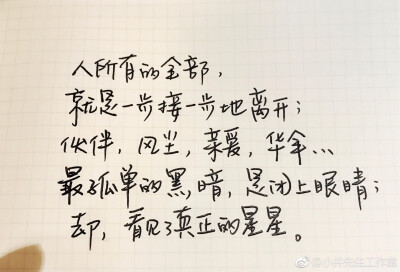 人所有的全部，
就是一步接一步地离开；
伙伴，风尘，亲爱，华年…
最孤单的黑暗，是闭上眼睛；
却，看见了真正的星星。
@小井先生工作室